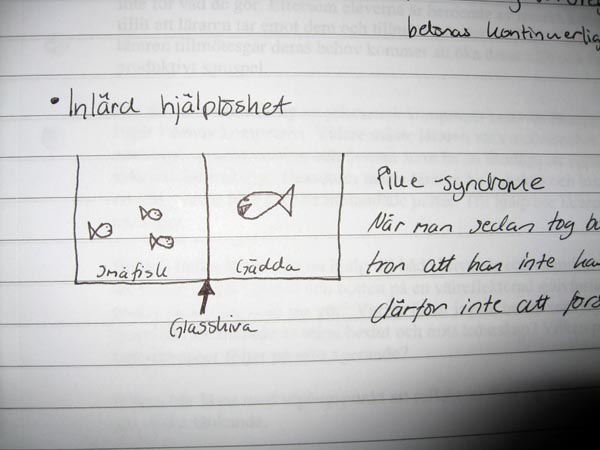 betonas kontinuerlig
• Inlärd hjälplöshet
Pike-syndrome
När man sedan tog bo
småfisk Gädda
tron att han inte ha
Glasskiva
därför inte att förs